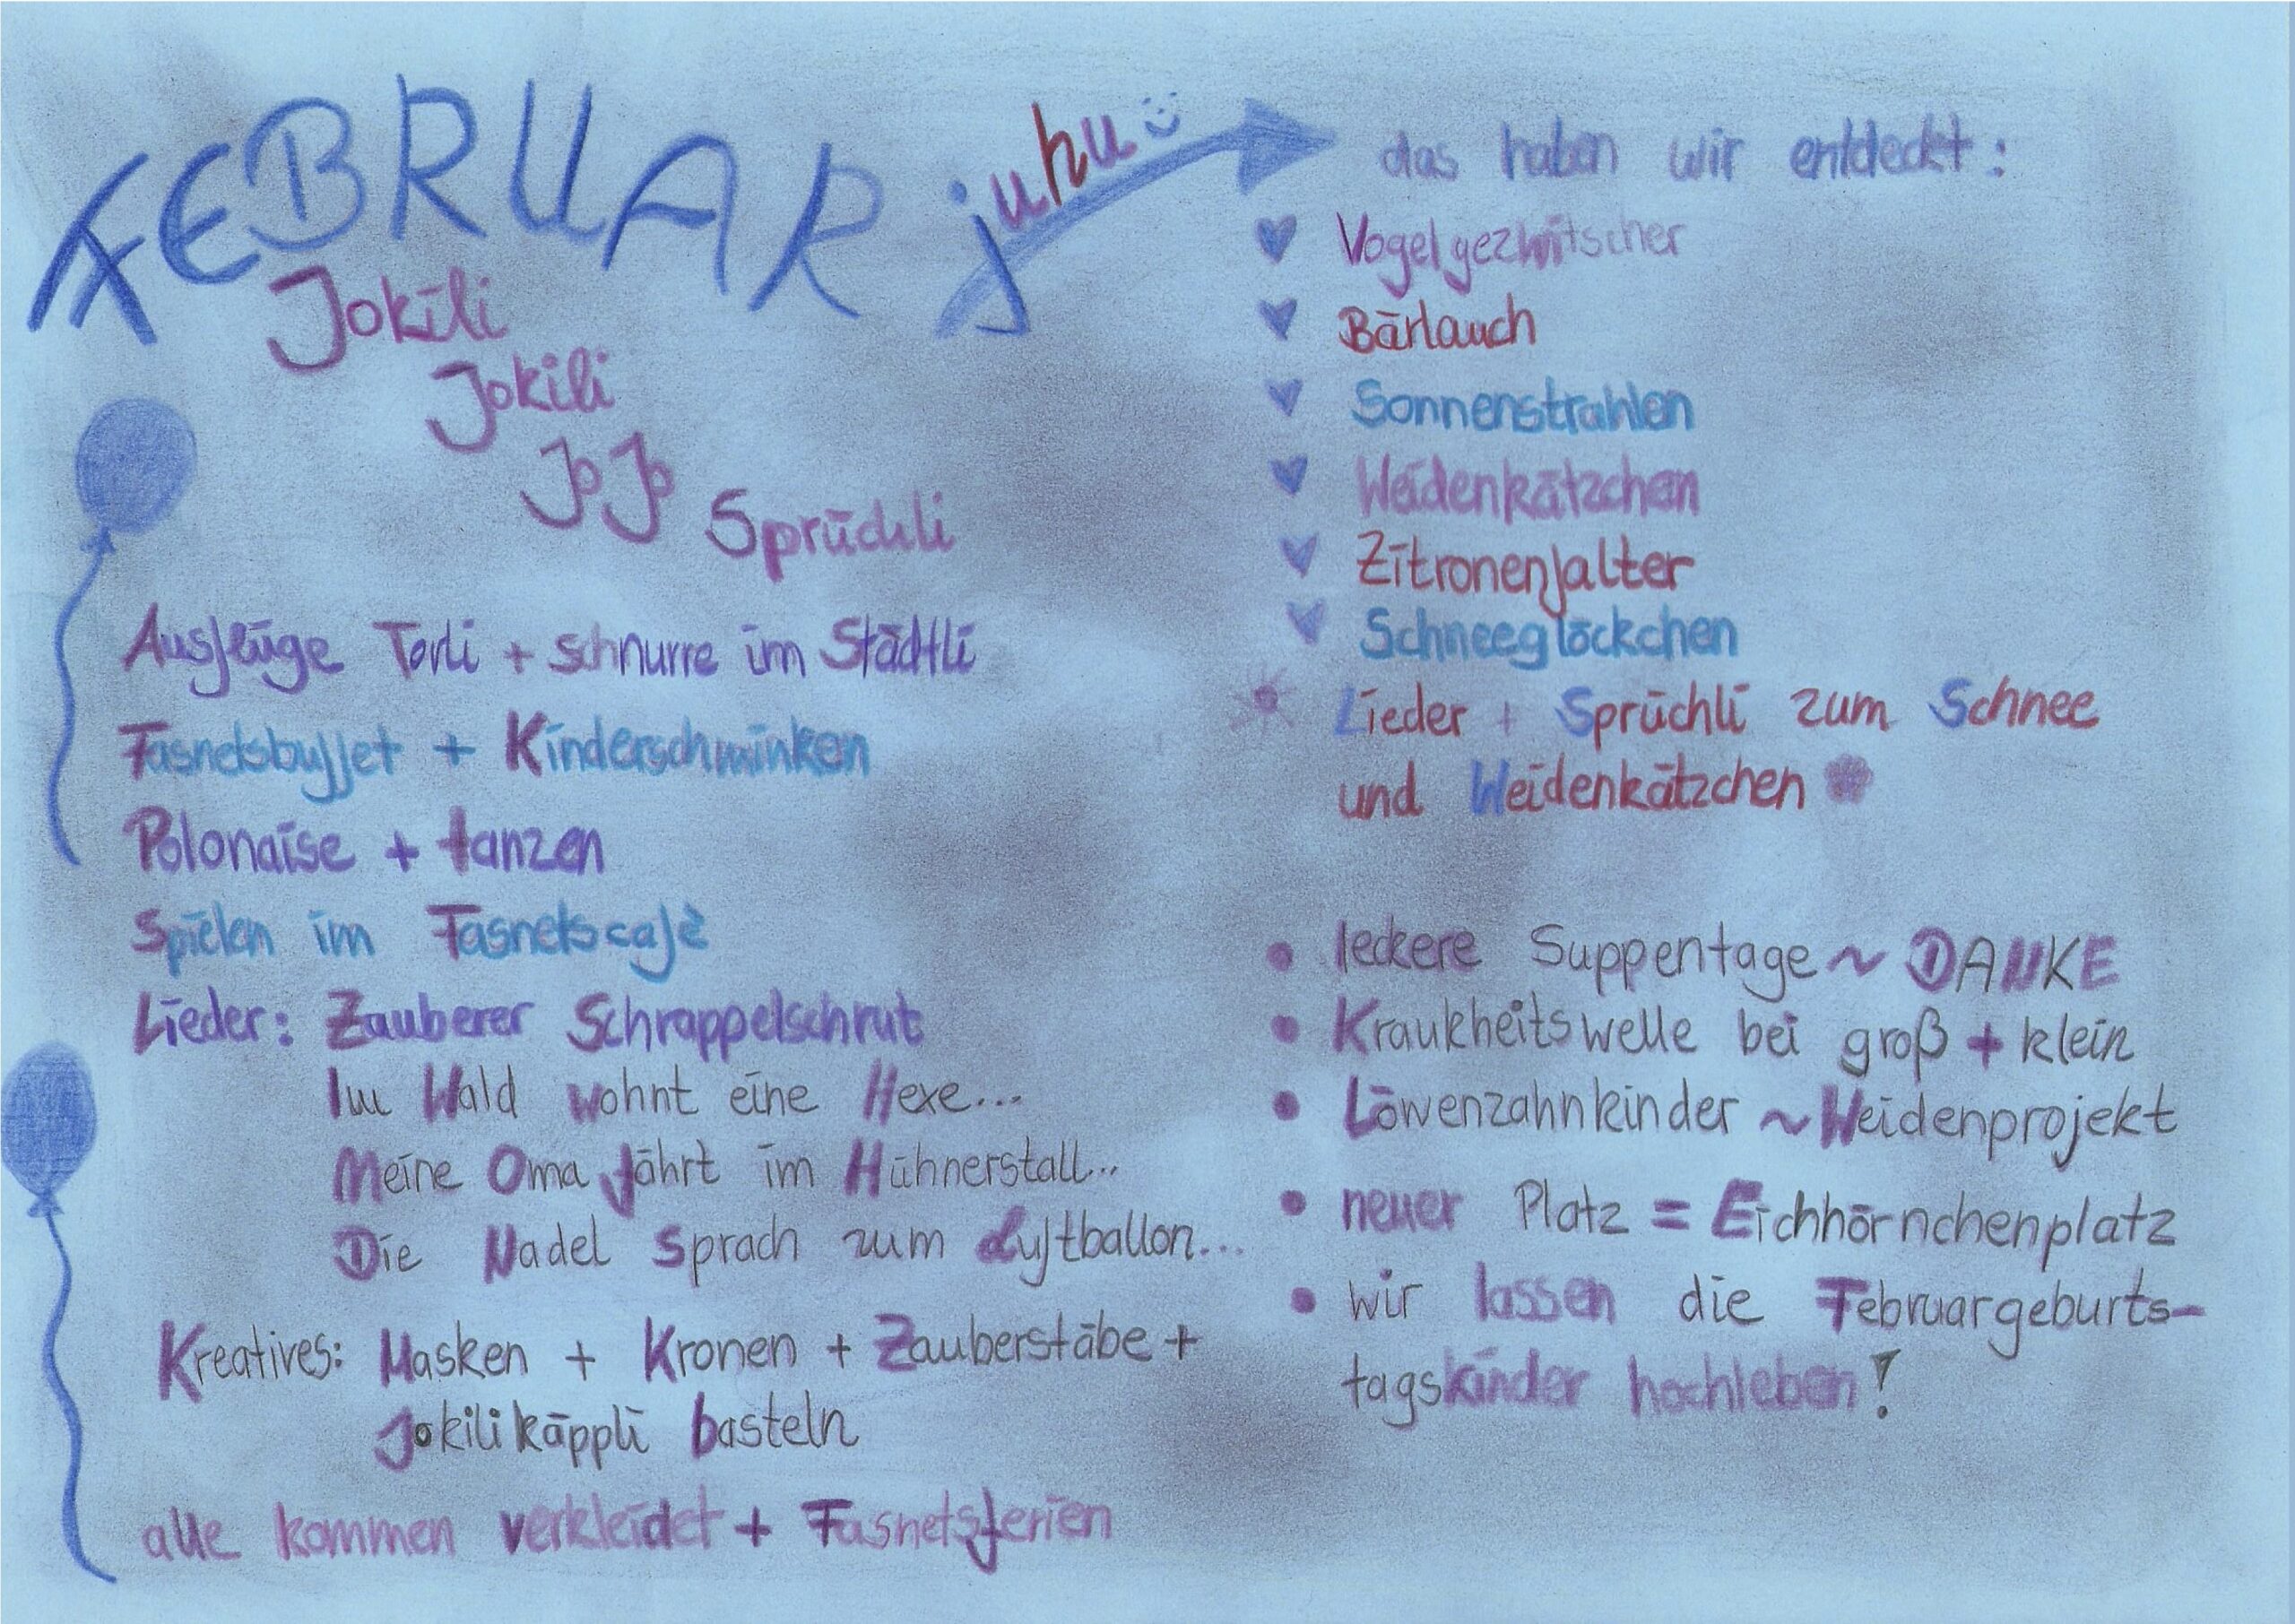 FEBRUAR juhu
Jokili
Jokili
Jo Jo
Sprüchli
Ausflüge Torli + schnurre im Städtli
Fasnetsbuffet + Kinderschminken
Polonaise + tanzen
Spielen im Fasnetscafè
Lieder: Zauberer Schrappelschrut
Im Wald wohnt eine Hexe...
Meine Oma fährt im Hühnerstall...
Die Nadel sprach zum Luftballon...
Kreatives: Masken + Kronen + Zauberstäbe +
Jokilikäppli basteln
alle kommen verkleidet + Fasnetsferien
das haben wir entdeckt:
Vogelgezwitscher
Bärlauch
Sonnenstrahlen
Weidenkätzchen
Zitronenfalter
Schneeglöckchen
Lieder + Sprüchli zum Schnee
und Weidenkätzchen
• leckere Suppentage ~ DANKE
• Krankheitswelle bei groß + klein
• Löwenzahnkinder ~ Weidenprojekt
• neuer Platz = Eichhörnchenplatz
• wir lassen die Februargeburts-
tagskinder hochleben!